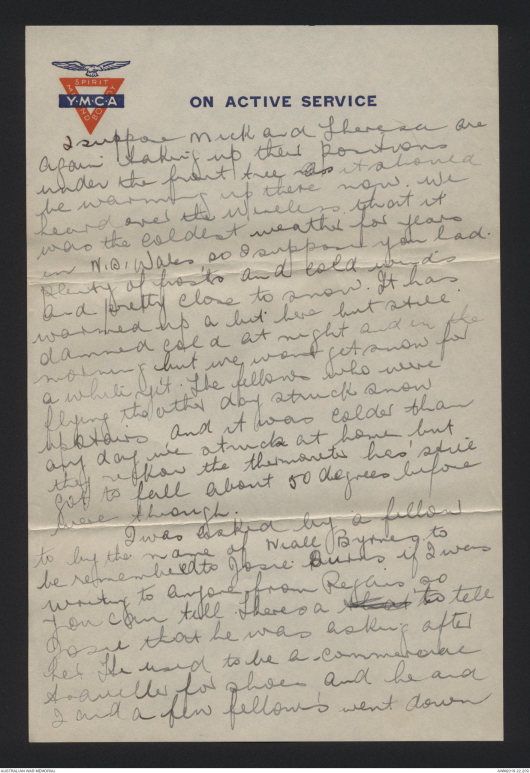 SPIRIT
MIND BODY
Y·M·C·A
ON ACTIVE SERVICE
I suppose Mick and Theresa are
again taking up their positions
under the front tree as it should
be warming up there now. We
heard over the wireless that it
was the coldest weather for years
in N.S. Wales so I suppose you had
plenty of frosts and cold winds
and pretty close to snow. It has
warmed up a bit here but still
damned cold at night and in the
morning but we wont get snow for
a while yet. The fellows who were
flying the other day struck snow
upstairs and it was colder than
any day we struck at home but
they reckon the thermometer has still
got to fall about 50 degrees before
were through.
I was asked by a fellow
to by the name of Niall Byrnes to
be remembered to Josie Burns if I was
writing to anyone from Regans so
you can tell Theresa to tell
Josie that he was asking after
her. He used to be a commercial
traveller for shoes and he and
I and a few fellows went down
AUSTRALIAN WAR MEMORIAL